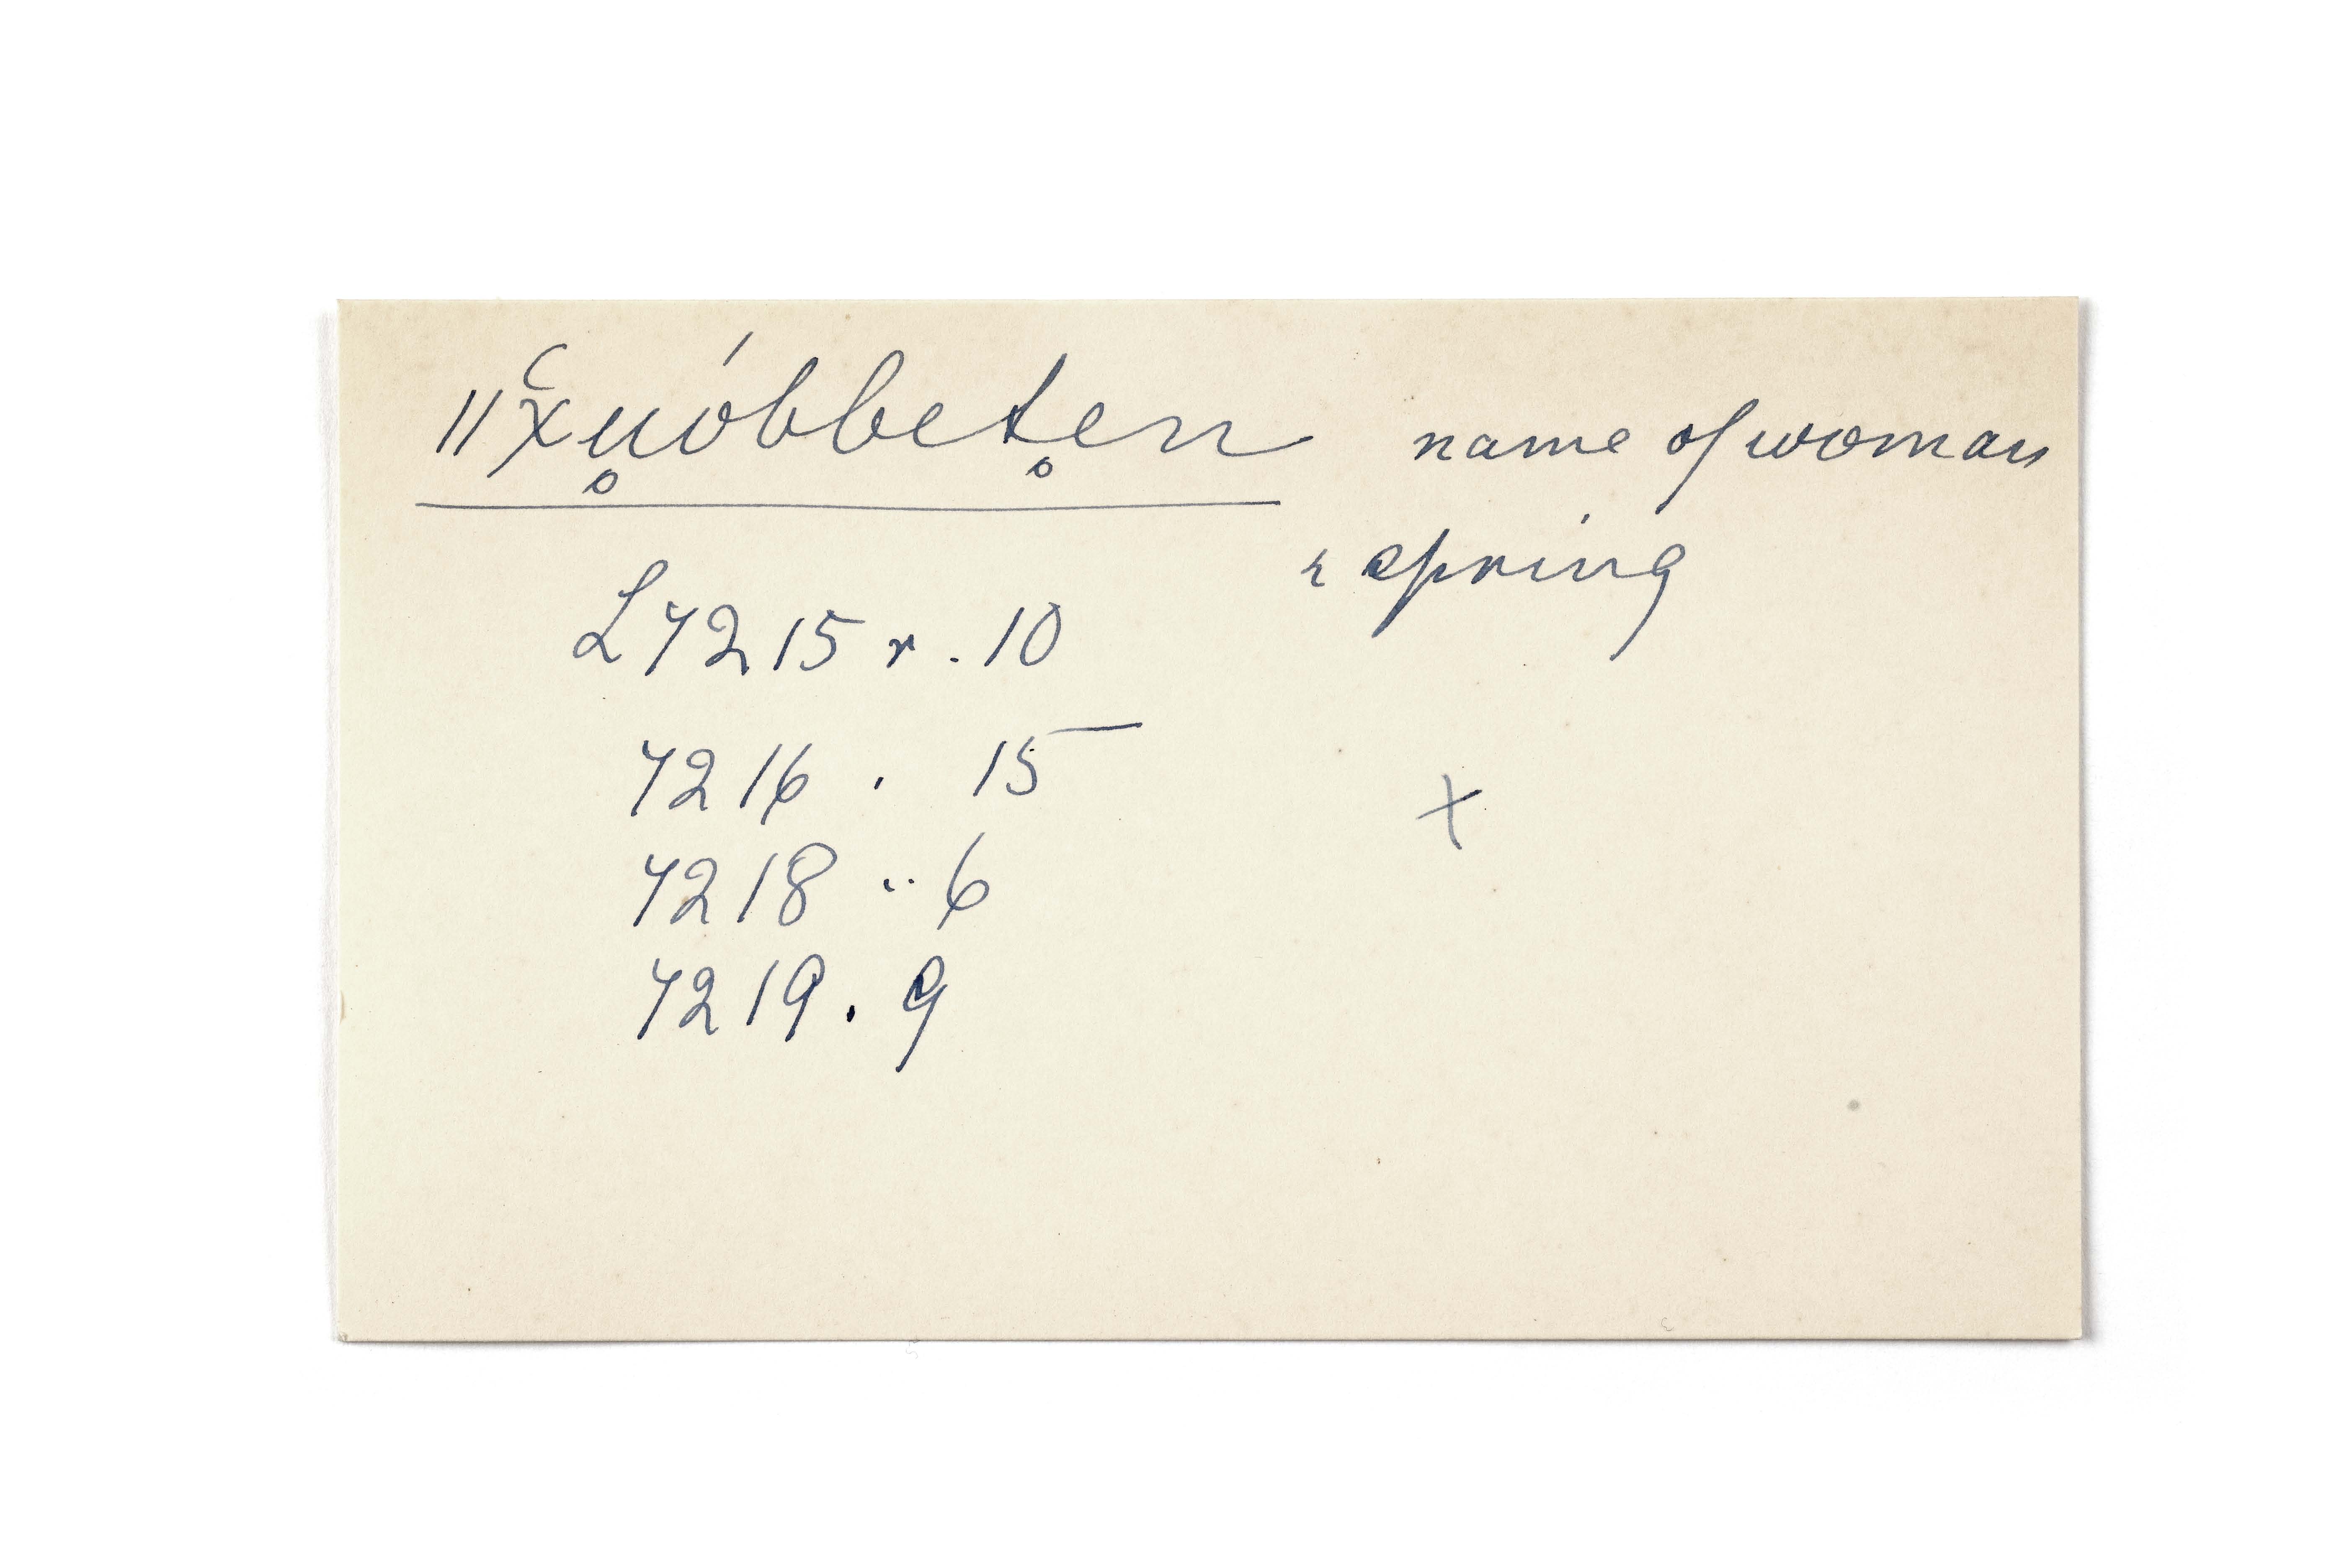 ǁχ̔u̥óbbet̥en name of woman
& spring
L 7215 r. 10
7216 . 15
7218 .. 6
7219 . 9
X